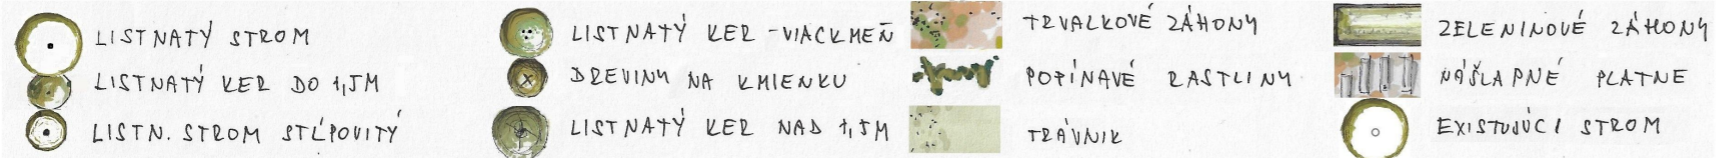 LISTNATÝ STROM
LISTNATÝ KER DO 1,5M
LISTN. STROM STĹPOVITÝ
LISTNATÝ KER - VIACKMEŇ
DREVINY NA KMIENKU
LISTNATÝ KER NAD 1,5M
TRVALKOVÉ ZÁHONY
POPÍNAVÉ RASTLINY
TRÁVNIK
ZELENINOVÉ ZÁHONY
NÁŠĽAPNÉ PLATNE
EXISTUJÚCI STROM